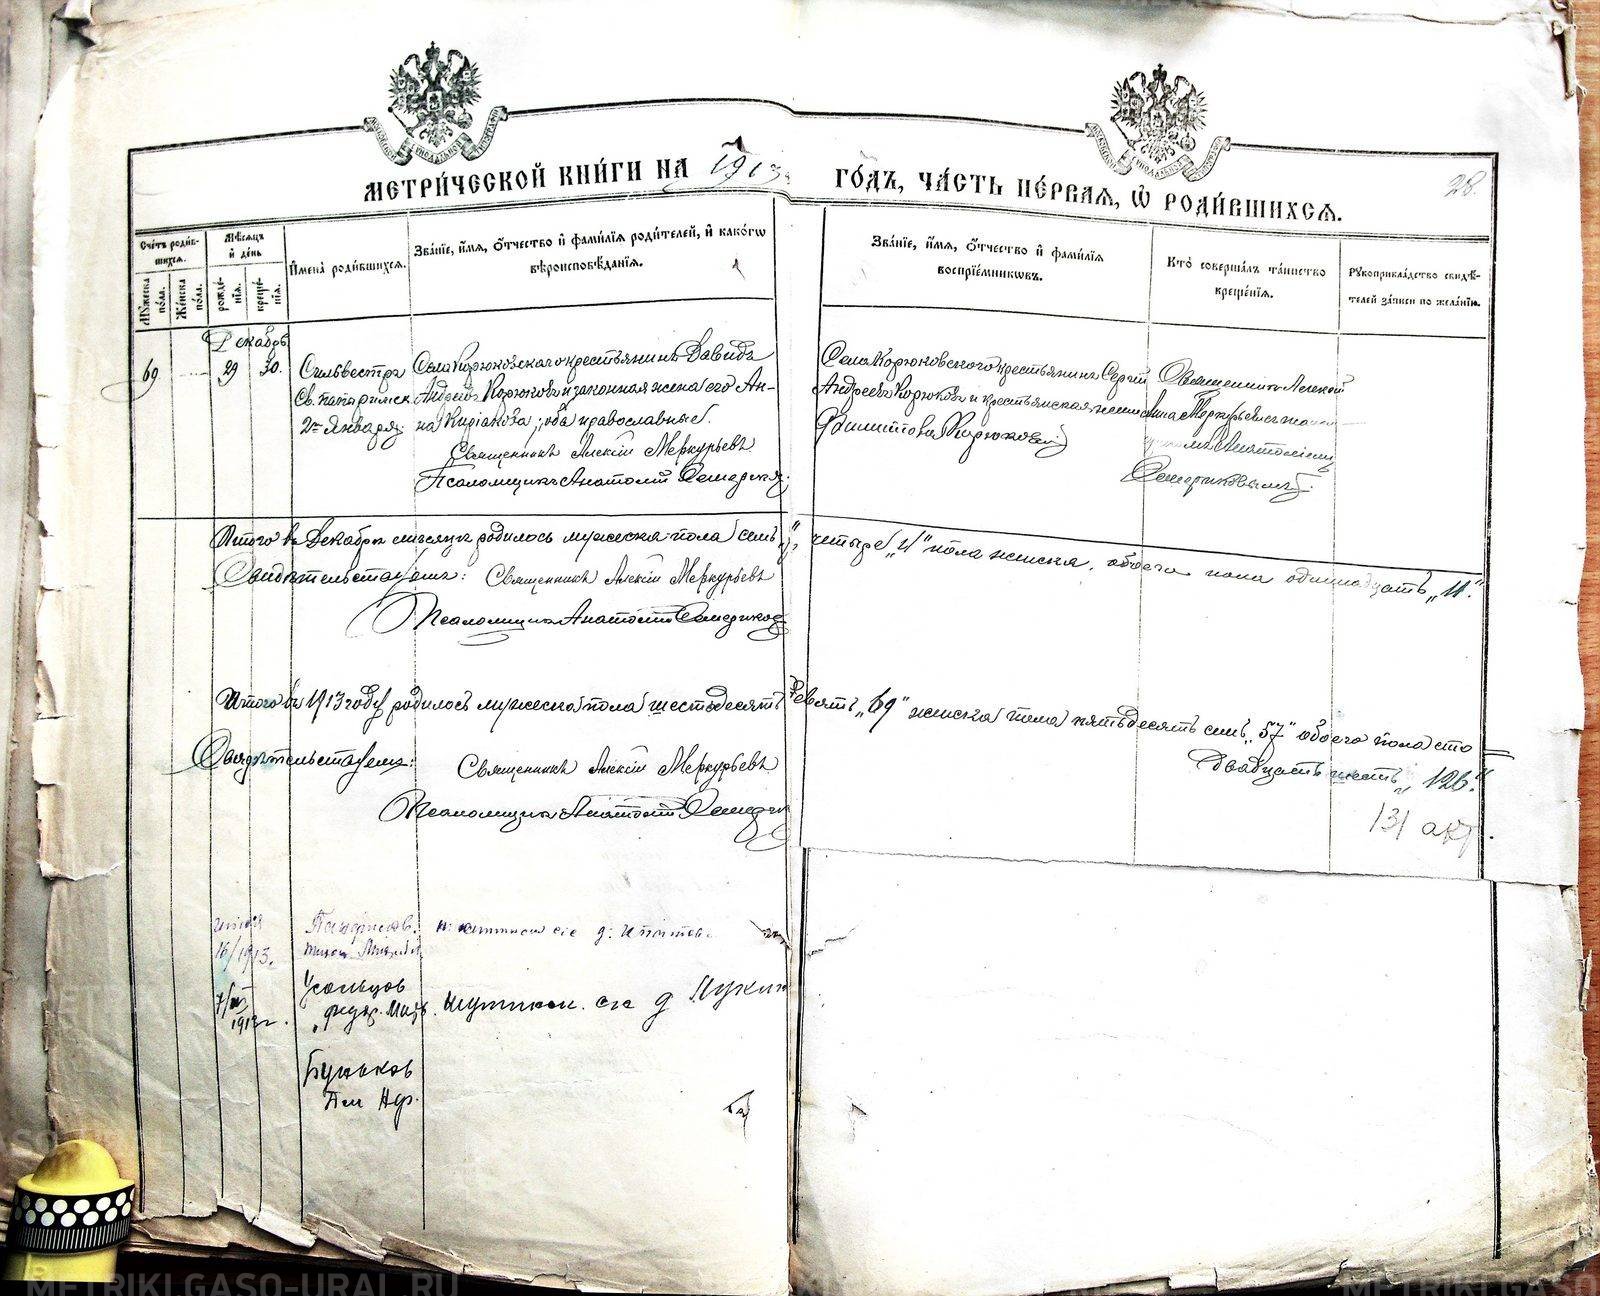 МЕТРИ́ЧЕСКОЙ КНИ́ГИ НА 1913 г.
ГО́ДЪ, ЧА́СТЬ ПЕ́РВАЯ, Ѡ РОДИ́ВШИХСЯ.
28.
Сче́тъ роди́в-
шихся.
Му́жеска по́ла.
Же́нска по́ла.
Мѣ́сяцъ и́ де́нь
рожде́-
нія.
креще́-
нія.
И́мена̀ роди́вшихся.
Зва́ніе, и́мя, о́тчество и́ фами́лія роди́телей, и́ како́гѡ
вѣроисповѣ́данія.
Зва́ніе, и́мя, о́тчество и́ фами́лія
воспріе́мниковъ.
Кто̀ соверша́лъ та́инство
креще́нія.
Рукоприкла́дство свидѣ́-
телей за́писи по жела́нію.
Декабрь
69
29
30.
Сильвестръ
Св. папа римск
2го Января.
Села Корюковскаго крестьянинъ Давидъ
Андреевъ Корюковъ и законная жена его Ан-
на Киріакова; оба православные.
Священникъ Алексій Меркурьевъ
Псаломщикъ Анатолій
Села Корюковского крестьянинъ Сергій
Андреевъ Корюковъ и крестьянская жена Анна
Филиппова Корюкова
Священникъ Алексій
Меркурьевъ
Анатоліемъ
Семериковымъ.
Итого въ Декабрѣ мѣсяцѣ родилось мужеска пола семь „7“, четыре „4“ пола женска, обоего пола одиннадцать „11“.
Свидѣтельствуемъ: Священникъ Алексій Меркурьевъ
Псаломщикъ Анатолій Семериков
Итого въ 1913 году родилось мужеска пола шестьдесятъ девять „69“ женска пола пятьдесятъ семь „57“ обоего пола сто
двадцать шесть „126“.
Свидѣтельствуемъ: Священникъ Алексій Меркурьевъ
Псаломщикъ Анатолій
131 акт.
16/1913.
Усольцов
1913 г.
Буньков
METRIKI.GASO-URAL.RU